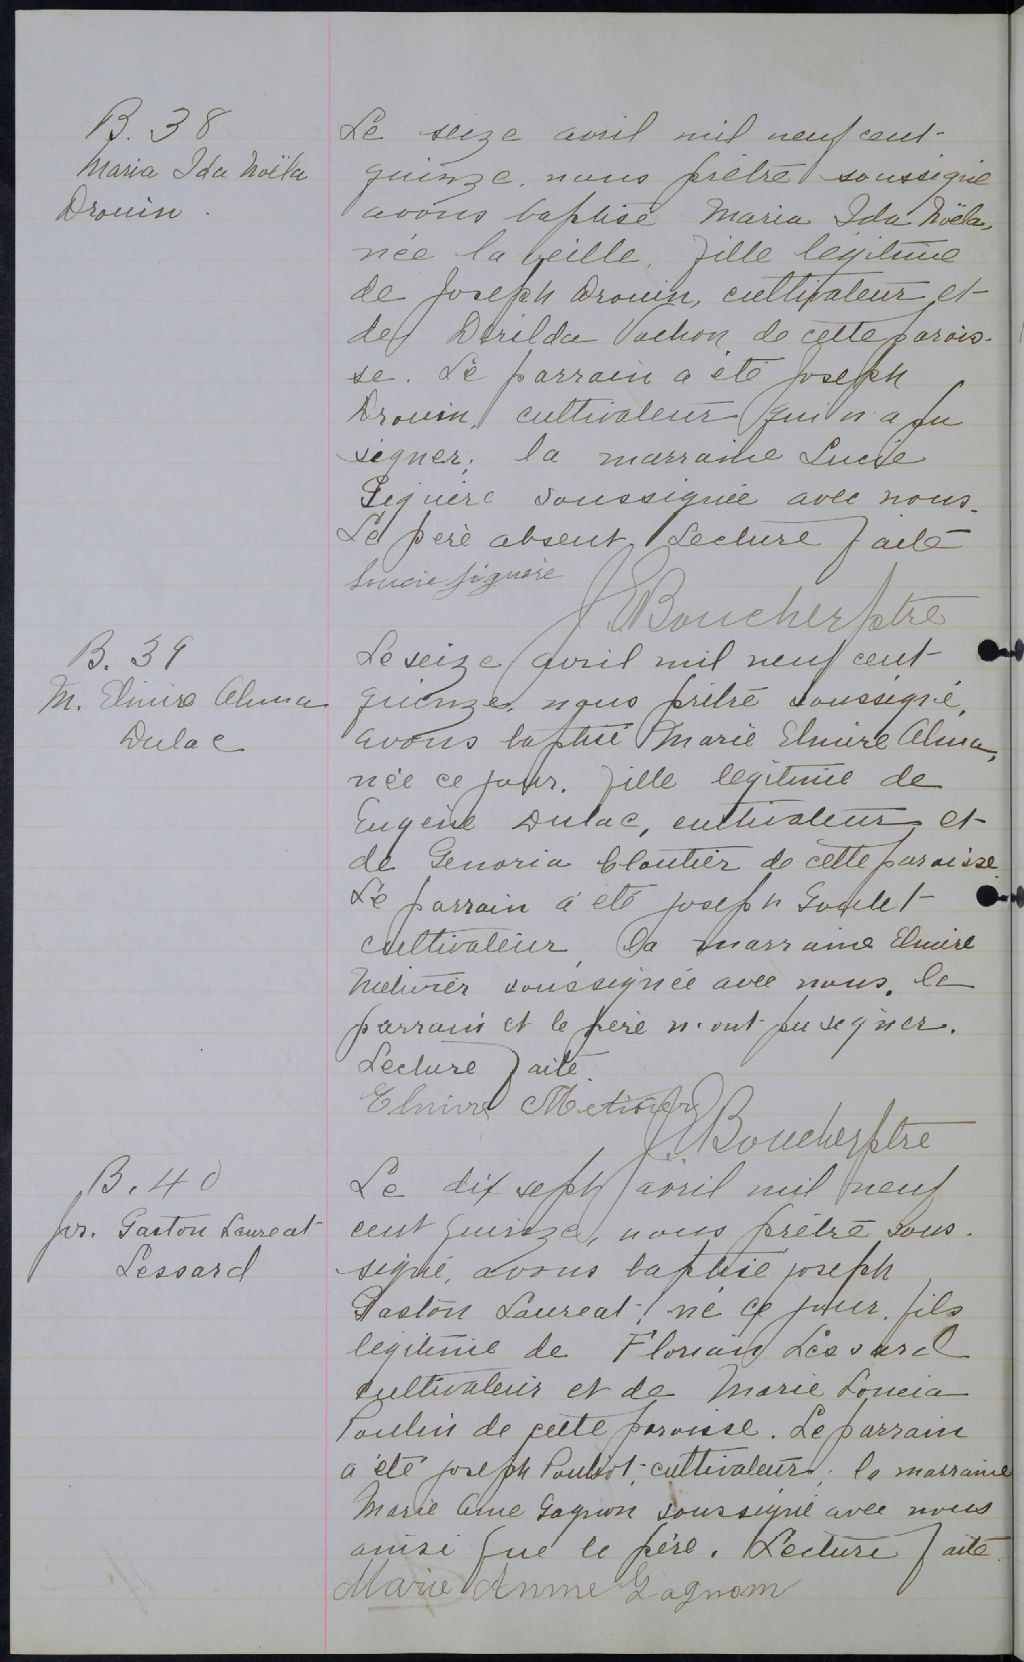 B. 38
Maria Ida Noëla
Drouin.
Le seize avril mil neuf cent
quinze, nous prêtre soussigné
avons baptisé Maria Ida Noëla,
née la veille, fille légitime
de Joseph Drouin, cultivateur et
de Dérilda Vachon de cette parois-
se. Le parrain a été Joseph
Drouin, cultivateur qui n'a pu
signer; la marraine Lucie
Giguère soussignée avec nous.
Le père absent, Lecture faite
Lucie Giguère
J. E. Boucher ptre
B. 39
M. Elmire Alma
Dulac
Le seize avril mil neuf cent
quinze, nous prêtre soussigné,
avons baptisé Marie Elmire Alma,
née ce jour, fille légitime de
Eugène Dulac, cultivateur et
de Genoria Cloutier de cette paroisse.
Le parrain a été Joseph Goulet
cultivateur, la marraine Elmire
Métivier soussignée avec nous, le
parrain et le père n'ont pu signer.
Lecture faite.
Elmire Metivier
J. E. Boucher ptre
B. 40
Jos. Gaston Laureat
Lessard
Le dix sept avril mil neuf
cent quinze, nous prêtre sous-
signé, avons baptisé Joseph
Gaston Laureat, né ce jour, fils
légitime de Florian Lessard
cultivateur et de Marie Loucia
Poulin de cette paroisse. Le parrain
a été Joseph Pouliot, cultivateur; la marraine
Marie Anne Gagnon soussigné avec nous
ainsi que le père. Lecture faite.
Marie Anne Gagnon